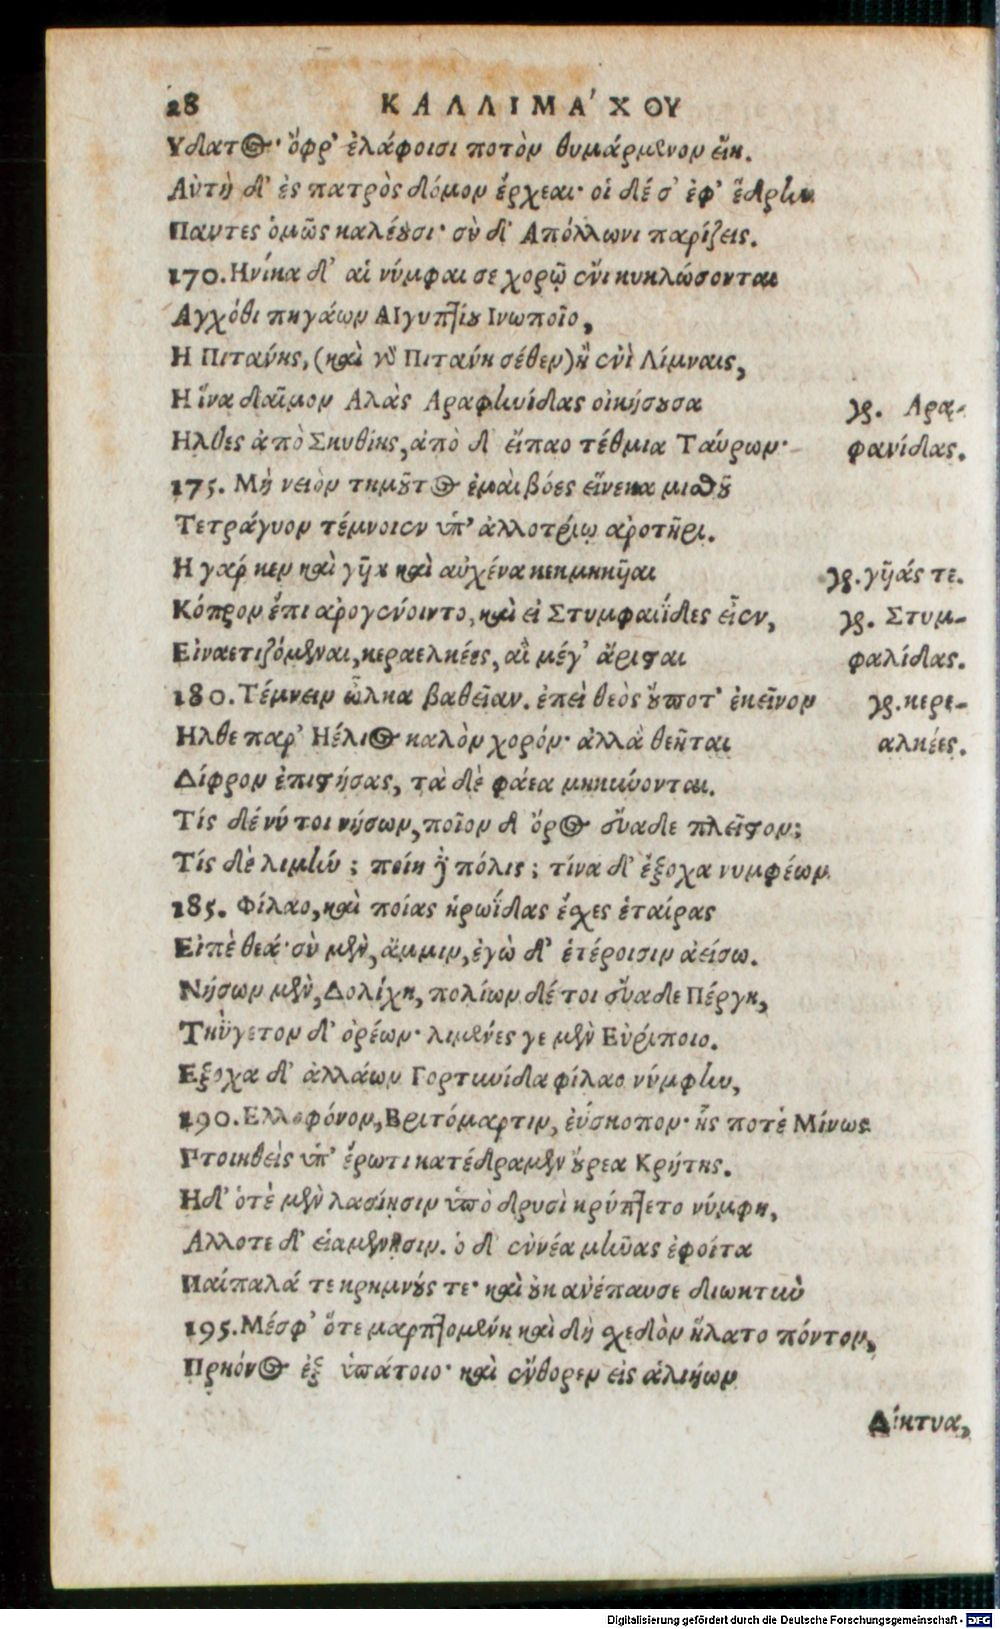 28 ΚΑΛΛΙΜΑ΄ΧΟΥ
Υδατος· ὄφρ' ἐλάφοισι ποτὸν θυμάρμενον εἴη.
Αὐτὴ δ' ἐς πατρὸς δόμον ἔρχεαι· οἱ δέ σ' ἐφ' ἕδρην
Παντες ὁμῶς καλέουσι· σὺ δ' Απόλλωνι παρίζεις.
170. Ηνίκα δ' αἱ νύμφαι σε χορῷ ἔνι κυκλώσονται
Αγχόθι πηγάων ΑΙγυπτίου Ινωποῖο,
Η Πιτάνης, (καὶ γὸ Πιτάνη σέθεν) ἢ ἐνὶ Λίμναις,
Η ἵνα δαῖμον Αλὰς Αραφηνίδας οἰκήσουσα γρ. Αρα-
Ηλθες ἀπὸ Σκυθίης, ἀπὸ δ' εἴπαο τέθμια Ταύρων· φανίδας.
175. Μὴ νειὸν τημοῦτος ἐμαὶ βόες εἵνεκα μισθοῦ
Τετράγυον τέμνοιεν ὑπ' ἀλλοτρίῳ ἀροτῆρι.
Η γαρ κεν καὶ γῆ κ καὶ αὐχένα κεκμηκῆαι γρ. γῆάς τε.
Κόπρον ἔπι αρογενοιντο, καὶ εἰ Στυμφαιΐδες εἶεν, γρ. Στυμ-
Εἰναετιζόμεναι, κεραελκέες, αἳ μέγ' ἄρισται φαλίδας.
180. Τέμνειν ὦλκα βαθεῖαν. ἐπεὶ θεὸς οὔποτ' ἐκεῖνον γρ. κερε-
Ηλθε παρ' Ηέλιος καλὸν χορόν· ἀλλὰ θεῆται αλκέες.
Δίφρον ἐπιστήσας, τὰ δὲ φάεα μηκύονται.
Τίς δέ νύ τοι νήσων, ποῖον δ' ὄρος εὔαδε πλεῖστον;
Τίς δὲ λιμήν; ποίη δὲ πόλις; τίνα δ' ἔξοχα νυμφέων
185. Φίλαο, καὶ ποίας ἡρωΐδας ἔσχες ἑταίρας
Εἰπὲ θεά· σὺ μὲν, ἄμμιν, ἐγὼ δ' ἑτέροισιν ἀείσω.
Νήσων μὲν, Δολίχη, πολίων δέ τοι εὔαδε Πέργη,
Τηΰγετον δ' ὀρέων· λιμένες γε μὲν Εὐρίποιο.
Εξοχα δ' ἀλλάων Γορτυνίδα φίλαο νύμφην,
190. Ελλοφόνον, Βριτόμαρτιν, ἐΰσκοπον· ἧς ποτὲ Μίνως
Πτοιηθεὶς ὑπ' ἔρωτι κατέδραμεν οὔρεα Κρήτης.
Ηδ' ὁτὲ μὲν λασίησιν ὑπὸ δρυσὶ κρύπτετο νύμφη,
Αλλοτε δ' εἱαμενῆσιν. ὁ δ' ἐννέα μῆνας ἐφοίτα
Παίπαλά τε κρημνούς τε· καὶ οὐκ ἀνέπαυσε διωκτυὺ
195. Μέσφ' ὅτε μαρπτομένη καὶ δὴ σχεδὸν ἥλατο πόντον,
Πρηόνος ἐξ ὑπάτοιο· καὶ ἔνθορεν εἰς ἁλιήων
Δίκτυα,
Digitalisierung gefördert durch die Deutsche Forschungsgemeinschaft - DFG